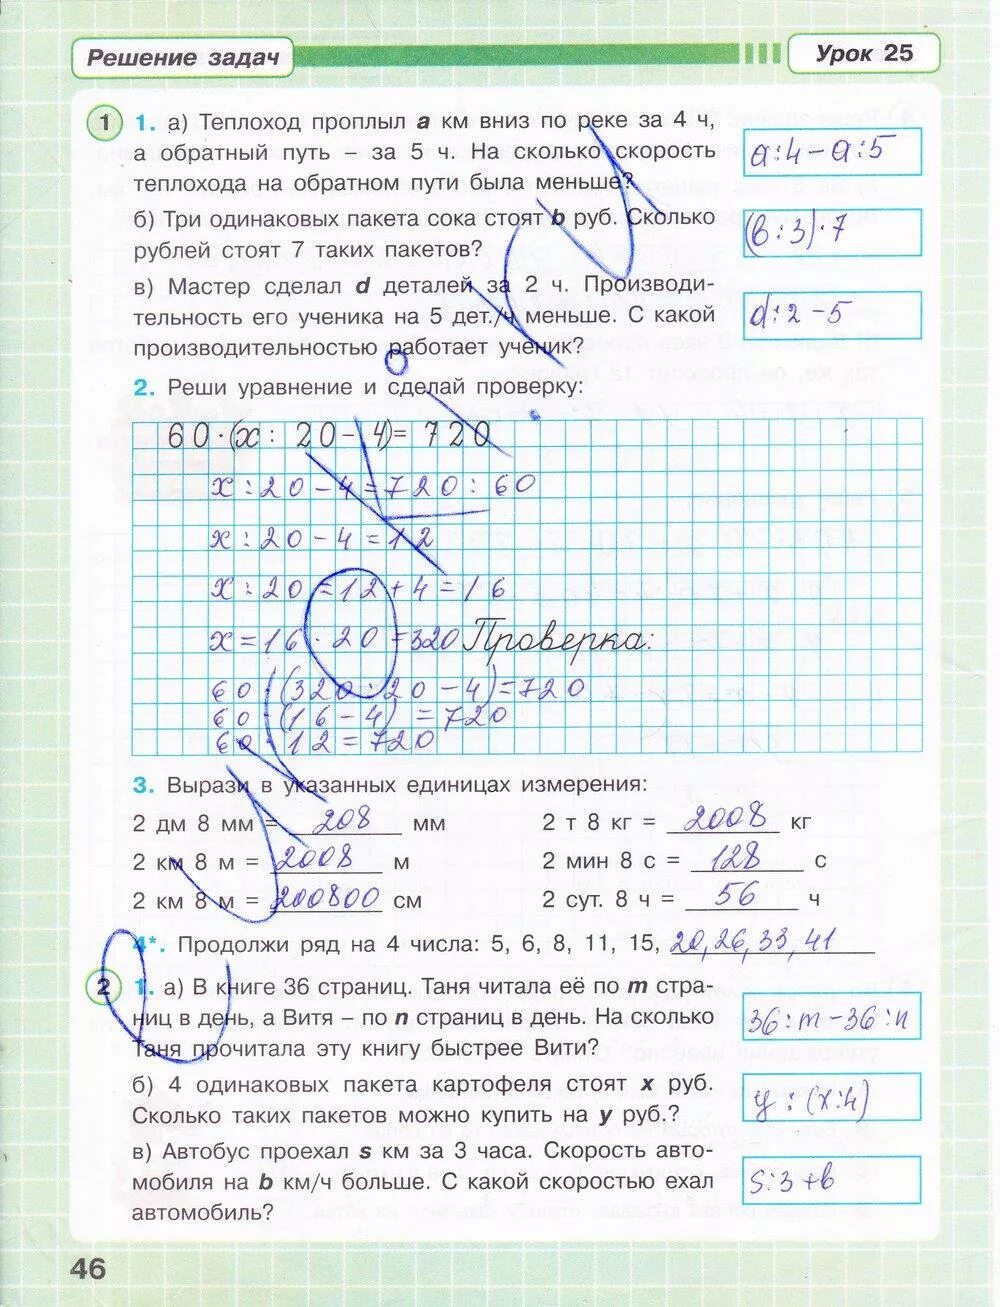 Решение задач
Урок 25
1 1. а) Теплоход проплыл a км вниз по реке за 4 ч,
а обратный путь – за 5 ч. На сколько скорость
теплохода на обратном пути была меньше?
a:4-a:5
б) Три одинаковых пакета сока стоят b руб. Сколько
рублей стоят 7 таких пакетов?
(b:3)·7
в) Мастер сделал d деталей за 2 ч. Производи-
тельность его ученика на 5 дет./ч меньше. С какой
производительностью работает ученик?
d:2-5
2. Реши уравнение и сделай проверку:
60·(x:20-4)=720
x:20-4=720:60
x:20-4=12
x:20=12+4=16
x=16·20=320 Проверка:
60·(320:20-4)=720
60·(16-4)=720
60·12=720
3. Вырази в указанных единицах измерения:
2 дм 8 мм = 208 мм
2 т 8 кг = 2008 кг
2 км 8 м = 2008 м
2 мин 8 с = 128 с
2 км 8 м = 200800 см
2 сут. 8 ч = 56 ч
4*. Продолжи ряд на 4 числа: 5, 6, 8, 11, 15, 20, 26, 33, 41
2 1. а) В книге 36 страниц. Таня читала её по m стра-
ниц в день, а Витя – по n страниц в день. На сколько
Таня прочитала эту книгу быстрее Вити?
36:m-36:n
б) 4 одинаковых пакета картофеля стоят x руб.
Сколько таких пакетов можно купить на y руб.?
y:(x:4)
в) Автобус проехал s км за 3 часа. Скорость авто-
мобиля на b км/ч больше. С какой скоростью ехал
автомобиль?
s:3+b
46